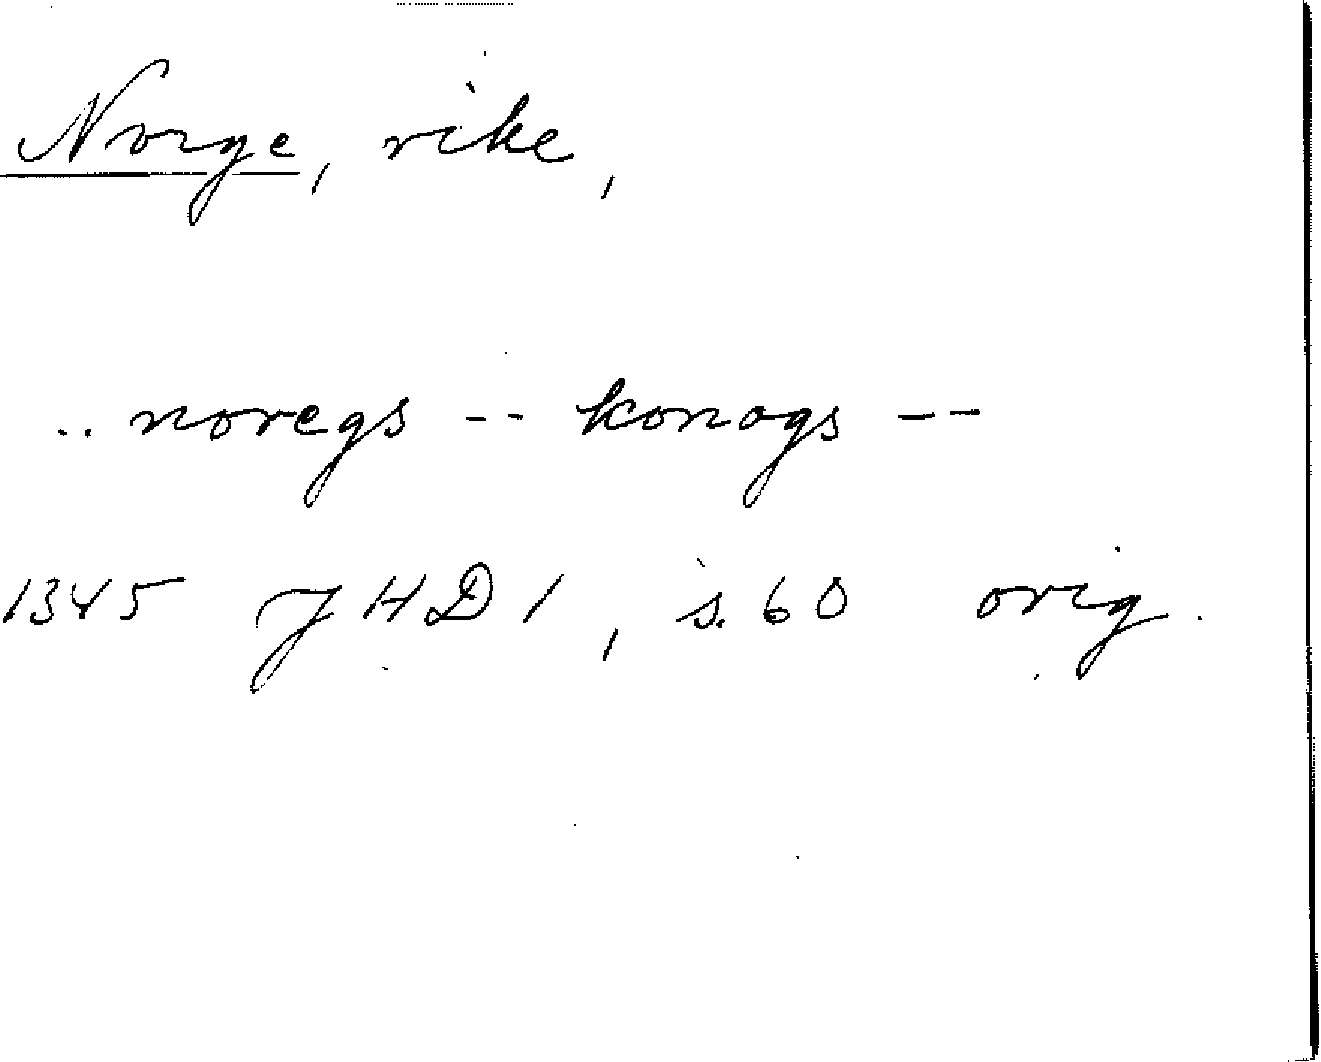 Norge, rike,
.. noregs -- konogs --
1345 JHD 1, s. 60 orig.